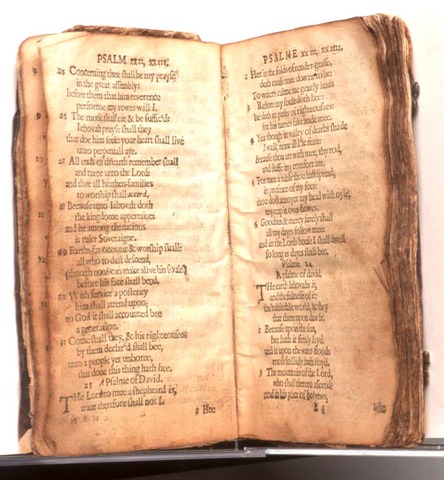 PSALM xxii, xxiii.
25 Concerning thee shall be my prayse
in the great assembly:
before them that him reverence
performe my vowes will I.
26 The meek shall eat & be suffic'd:
Jehovah prayse shall they
that doe him seek: your heart shall live
unto perpetuall aye.
27 All ends of th'earth remember shall
and turne unto the Lord:
and thee all heathen-families
to worship shall accord.
28 Because unto Iehovah doth
the kingdome appertaine:
and he among the nations
is ruler Soveraigne.
29 Earths-fat-ones, eat & worship shall:
all who to dust descend,
(though none can make alive his soule)
before his face shall bend.
30 With service a posterity
him shall attend upon;
to God it shall accounted bee
a generation.
31 Come shall they, & his righteousnes
by them declar'd shall bee,
unto a people yet unborne,
that done this thing hath hee.
23 A Psalme of David.
THe Lord to mee a shepheard is,
want therefore shall not I.
2 Hee
PSALME xxiii, xxiv.
2 Hee in the folds of tender-grasse,
doth cause mee downe to lie:
To waters calme me gently leads
3 Restore my soule doth hee:
he doth in paths of righteousnes:
for his names sake leade mee.
4 Yea though in valley of deaths shade
I walk, none ill I'le feare:
because thou art with mee, thy rod,
and staffe my comfort are.
5 For mee a table thou hast spread,
in presence of my foes:
thou dost annoynt my head with oyle,
my cup it over-flowes.
6 Goodnes & mercy surely shall
all my dayes follow mee:
and in the Lords house I shall dwell
so long as dayes shall bee.
Psalme 24
A psalme of david.
THe earth Iehovahs is,
and the fulnesse of it:
the habitable world, & they
that there upon doe sit.
2 Because upon the seas,
hee hath it firmly layd:
and it upon the water-floods
most sollidly hath stayd.
3 The mountaine of the Lord,
who shall thereto ascend?
and in his place of holynes,